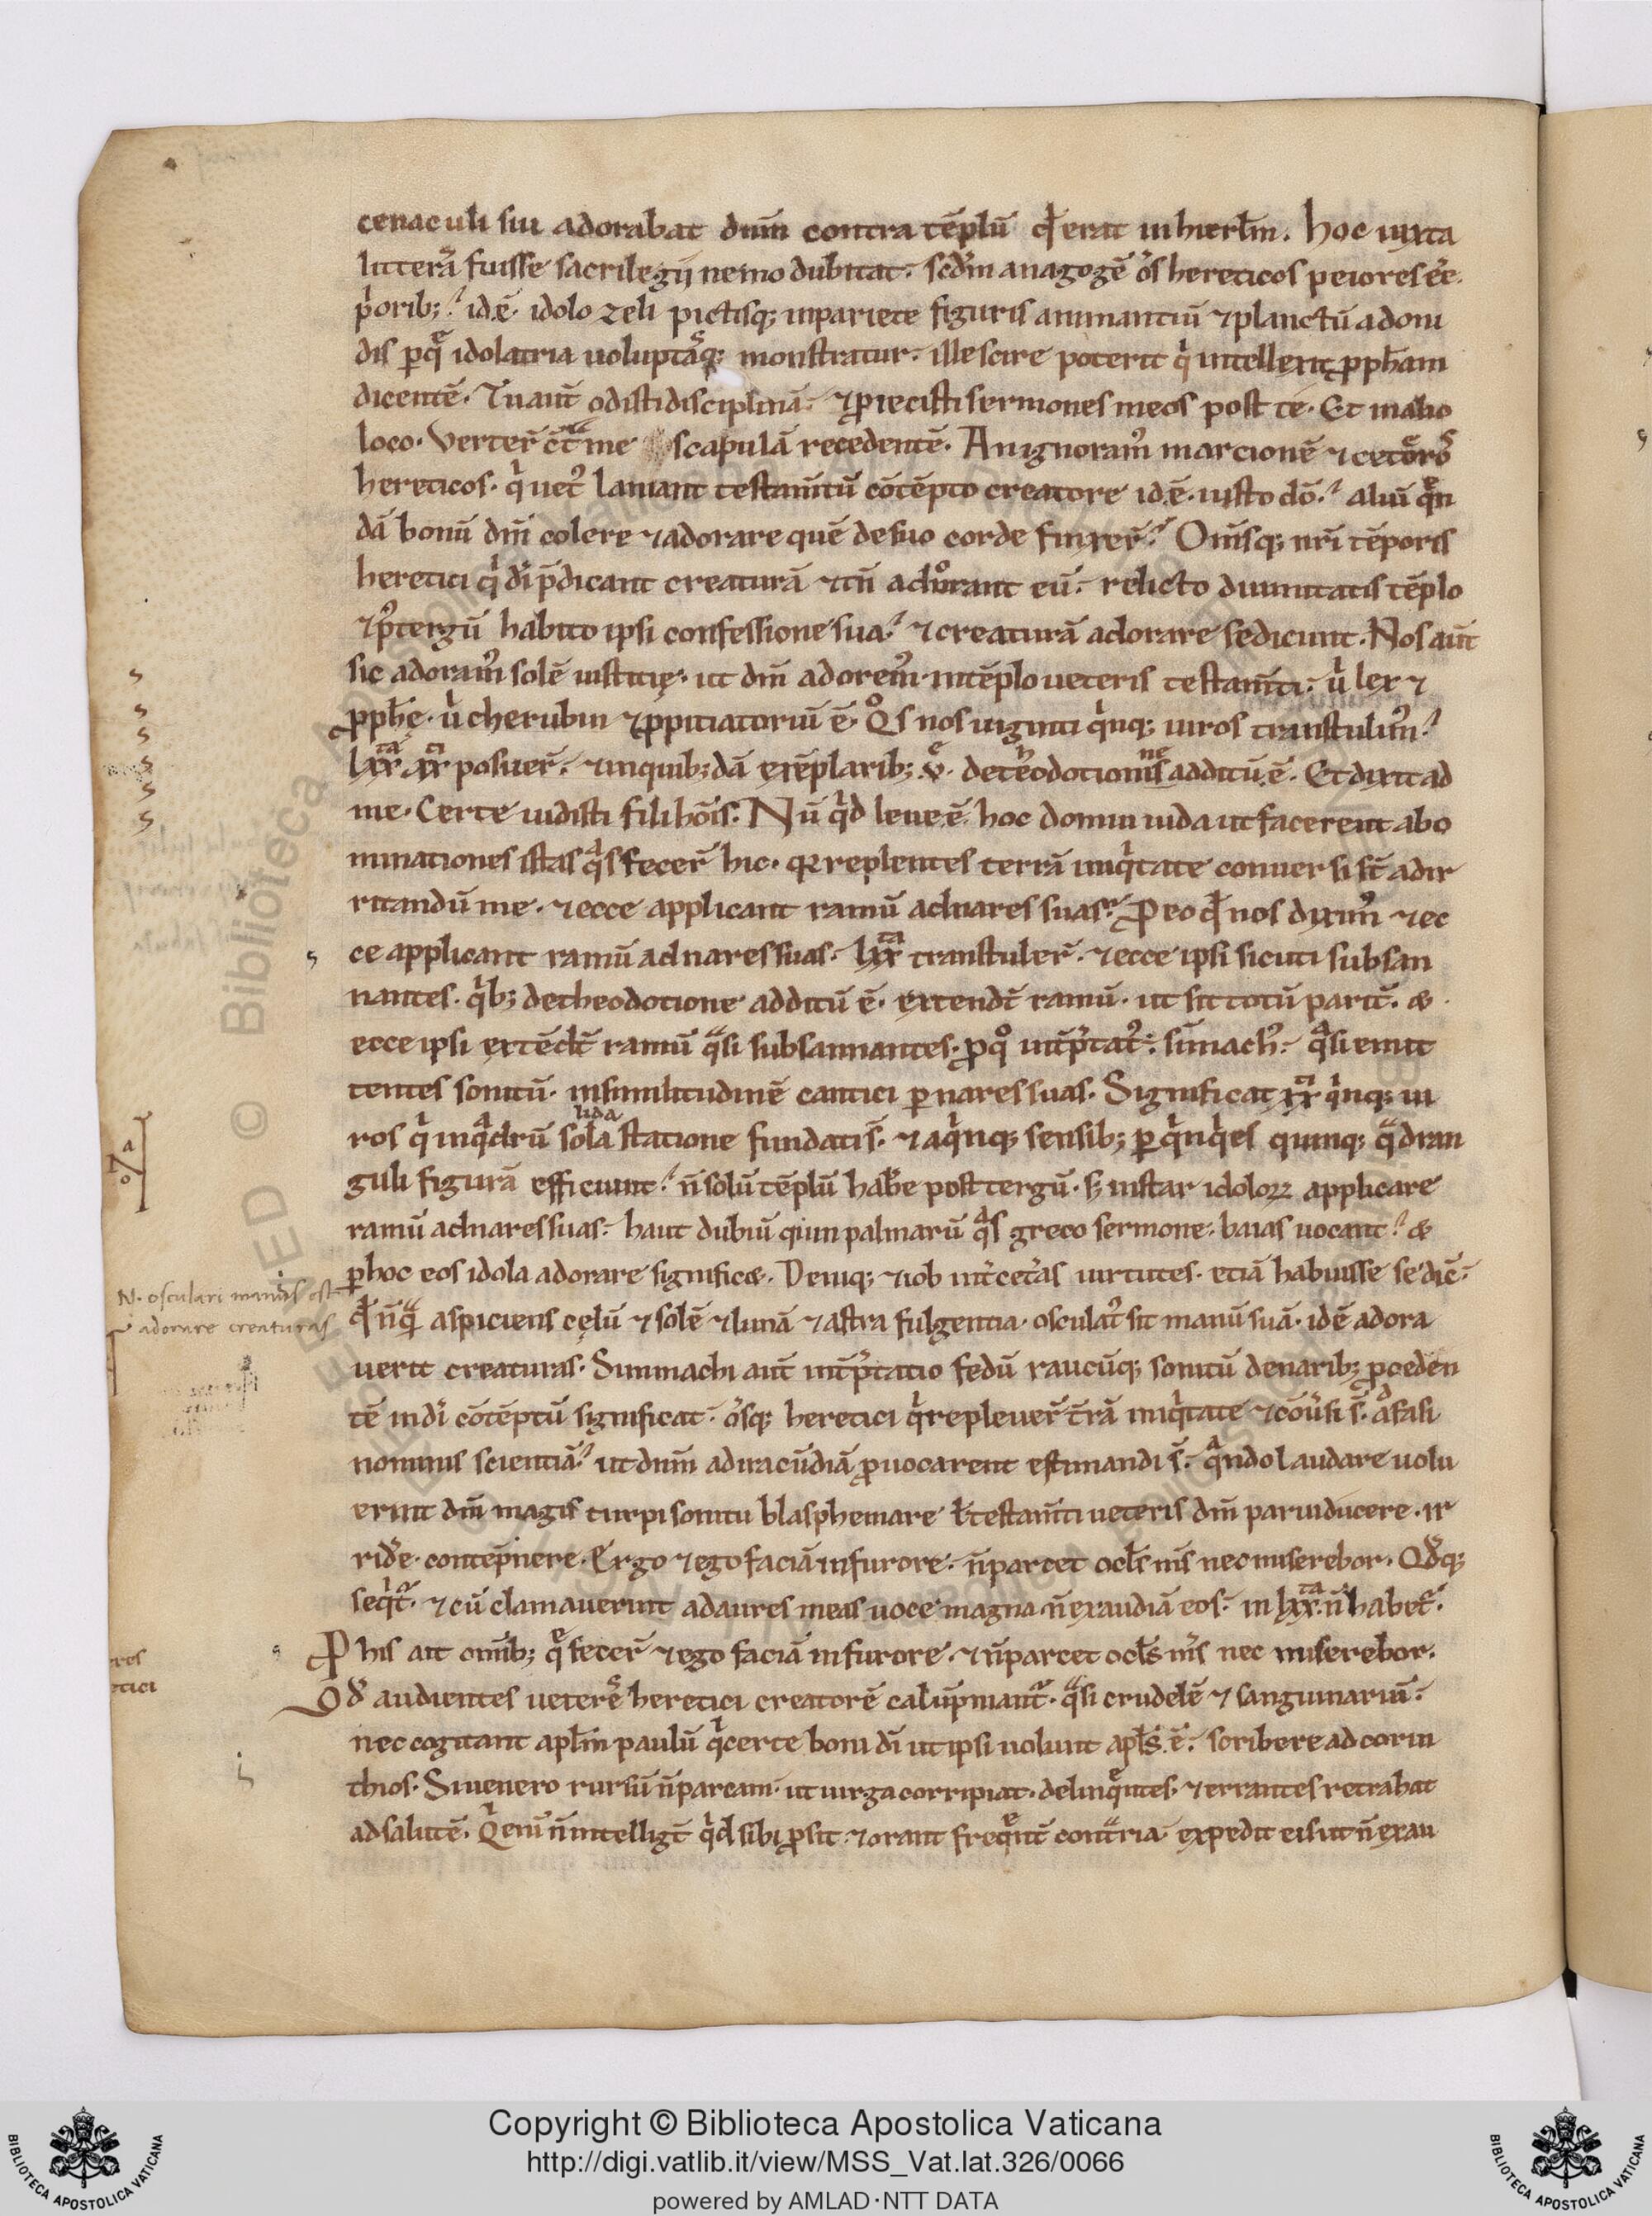 cenaculi sui adorabat dnm̄ contra tēplū qđ erat in hierlm̄. hoc iuxta
litterā fuisse sacrilegij nemo dubitat. scđm anagogē oṣ hereticos peiores eē.
p̍orib; id.ē. idolo zeli pictisq; in pariete figuris animantiū ⁊ planctū adoni
dis ꝑ qͤ idolatria uoluptasq; monstratur. ille scire poterit qͥ intellexit ꝓpham
dicentē. Tu aut̄ odisti disciplinā. ⁊ ꝓiecisti sermones meos post te. Et in alio
loco. Verter̄ ct̄ me scapulā recedentē. An ignoram᾽ marcionē ⁊ ceteros
hereticos. qͥ uet᾽ laniant testam̄tū cōtēpto creatore id.ē. iusto dō. aliū qͤn
dā bonū dm̄ colere ⁊ adorare quē de suo corde finxer̄. Om̄sq; nr̄i tēporis
heretici qͥ d̄i p̄dicant creaturā ⁊ tn̄ adorant eū. relicto diuinitatis tēplo
⁊ p᾽ tergū habito ipsi confessione sua. ⁊ creaturā adorare se dicunt. Nos aut̄
sic adoram᾽ solē iustitię. ut dm̄ adorem᾽ in tēplo ueteris testam̄ti. uͥ lex ⁊
ꝓph̄ę. uͥ cherubin ⁊ ꝓpitiatoriū ē. Qͦs nos uiginti qͥnq; uiros transtulim᾽.
lxxͭ͡ᵃ xxͭ͡ⁱ posuer̄. ⁊ in quib;dā exēplarib; v̊. de teͪodotionis ne additū ē. Et dixit ad
me. Certe uidisti fili hōis. Nū qͥd leue ē hoc domui iuda ut facerent abo
minationes istas qͣs fecer̄ hic. qꝛ replentes terrā iniqͥtate conuersi st̄ ad ir
ritandū me. ⁊ ecce applicant ramū ad nares suas. Pro eo qđ nos dixim᾽ ⁊ ec
ce applicant ramū ad nares suas. lxxͭ͡ᵃ transtuler̄. ⁊ ecce ipsi sicuti subsan
nantes. qͥb; de theodotione additū ē. extendt̄ ramū. ut sit totū parit̄. &
ecce ipsi extēdt̄ ramū qͣsi subsannantes. ꝓ qͦ int̄p̄tat᾽. simach᾽. qͣsi emit
tentes sonitū. in similitudinē cantici ꝑ nares suas. Significat xxͭ͡ⁱ qͥnq; ui
ros qͥ in qͣdrū solida statione fundatis̄. ⁊ a qͥnq; sensib; ꝑ qͥnqͥes quinq; qͣdran
guli figurā efficiunt. n̄ solū tēplū habēe post tergū. s; instar idoloꝝ applicare
ramū ad nares suas. haut dubiū quin palmarū qͣs greco sermone baias uocant. &
ꝑ hoc eos idola adorare signific&. Deniq; ⁊ iob int̄ cet̄as uirtutes. etiā habuisse se dic̄.
qđ nūqͣ aspiciens cęlū ⁊ solē ⁊ lunā ⁊ astra fulgentia. osculat᾽ sit manū suā. idē adora
uerit creaturas. Simmachi aut̄ int̄p̄tatio fedū raucūq; sonitū de narib; ꝓceden
tē in di᾽ cōtēptū significat. osq; heretici qͥ repleuer̄ t̄rā iniqͥtate ⁊ cōuersi s̄. a falsi
nominis scientiā. ut dnm̄ ad iracūdiā ꝓuocarent estimandi s̄. qͣndo laudare uolu
erint dm̄ magis turpi sonitu blasphemare ł testam̄ti ueteris dm̄ parui ducere. ir
rid᾽e. contēpnere. Ergo ⁊ ego faciā in furore. n̄ parcet ocl̄s m̄s nec miserebor. Qđq;
seqͥt᾽. ⁊ cū clamauerint ad aures meas uoce magna n̄ exaudiā eos. in lxxͭ͡ᵃ n̄ habet᾽.
P his ait om̄ib; qͤ fecer̄ ⁊ ego faciā in furore. ⁊ n̄ parcet ocl̄s m̄s nec miserebor.
Qđ audientes ueteres heretici creatorē calūpniant᾽. qͣsi crudelē ⁊ sanguinariū.
nec cogitant apl̄m paulū qͥ certe boni d̄i ut ipsi uolunt apl̄s.ē. scribere ad corin
thios. Si uenero rursū n̄ parcam. ut uirga corripiat. delinqͤntes. ⁊ errantes retrahat
ad salutē. Qͥ eni᾽ n̄ intelligt̄ qͥd sibi ꝓsit. ⁊ orant freqͤnt̄ contͣria expedit eis ut n̄ exau
N. osculari manus est
adorare creaturas
Copyright © Biblioteca Apostolica Vaticana
http://digi.vatlib.it/view/MSS_Vat.lat.326/0066
powered by AMLAD·NTT DATA
BIBLIOTECA APOSTOLICA VATICANA
BIBLIOTECA APOSTOLICA VATICANA